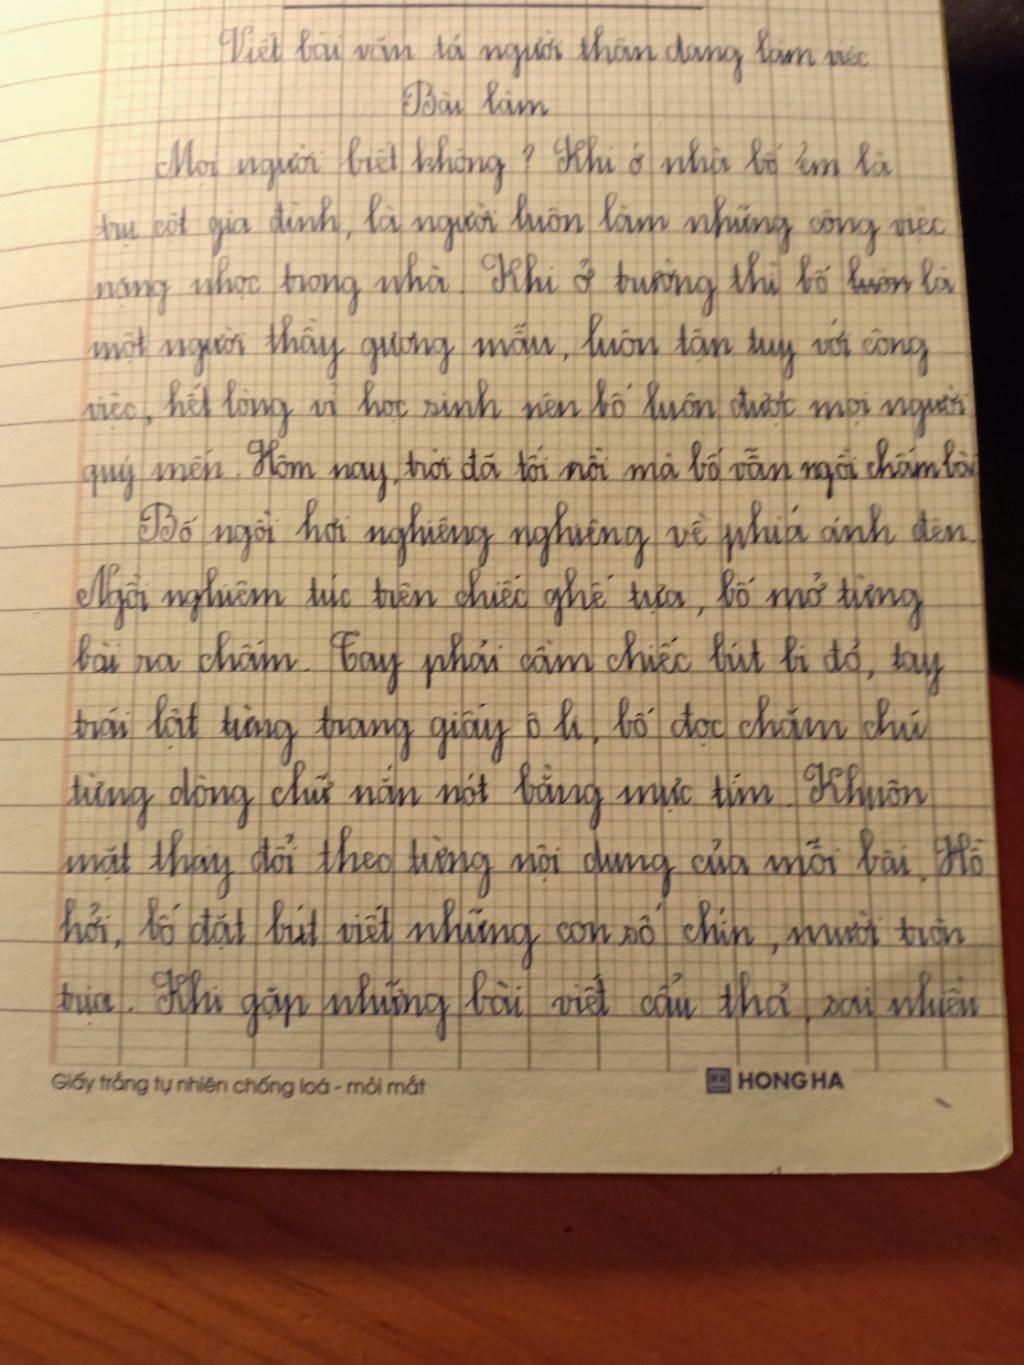 Viết bài văn tả người thân đang làm việc
Bài làm
Mọi người biết không? Khi ở nhà bố em là
trụ cột gia đình, là người luôn làm những công việc
nặng nhọc trong nhà. Khi ở trường thì bố luôn là
một người thầy gương mẫu, luôn tận tuỵ với công
việc, hết lòng vì học sinh nên bố luôn được mọi người
quý mến. Hôm nay, trời đã tối rồi mà bố vẫn ngồi chấm bài
Bố ngồi hơi nghiêng nghiêng về phía ánh đèn.
Ngồi nghiêm túc trên chiếc ghế tựa, bố mở từng
bài ra chấm. Tay phải cầm chiếc bút bi đỏ, tay
trái lật từng trang giấy ô li, bố đọc chăm chú
từng dòng chữ nắn nót bằng mực tím. Khuôn
mặt thay đổi theo từng nội dung của mỗi bài. Hồ
hởi, bố đặt bút viết những con số chín, mười tròn
trịa. Khi gặp những bài viết cẩu thả, sai nhiều
Giấy trắng tự nhiên chống loá - mỏi mắt
HONG HA